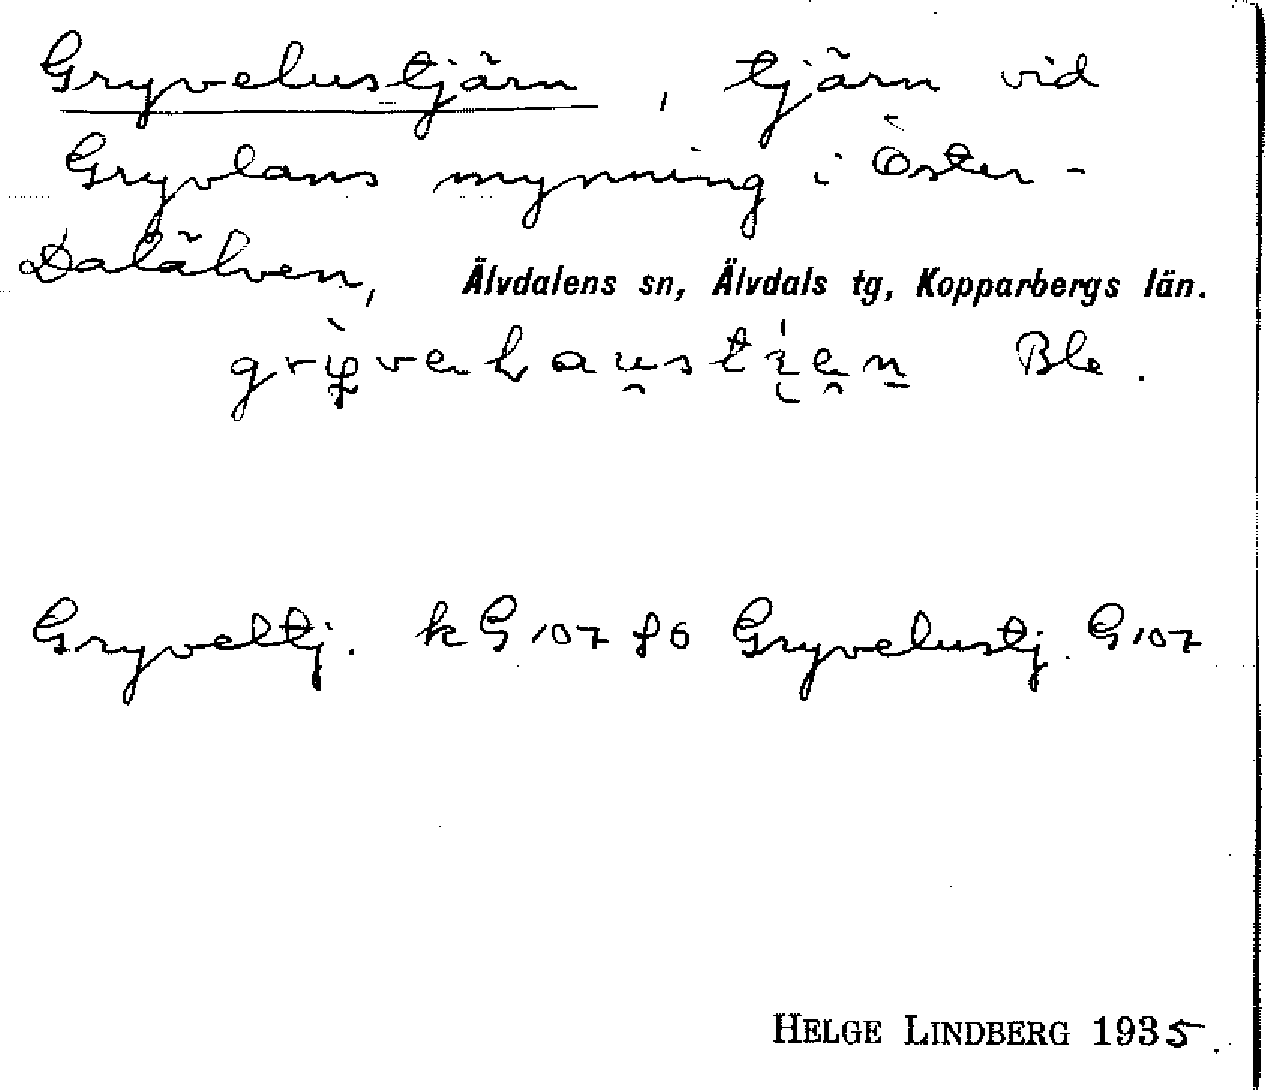 Gryvelustjärn, tjärn vid
Gryvlans mynning i Öster-
Dalälven, Älvdalens sn, Älvdals tg, Kopparbergs län.
Ble.
Gryveltj. k G 107 f6 Gryvelustj. G 107
HELGE LINDBERG 1935.